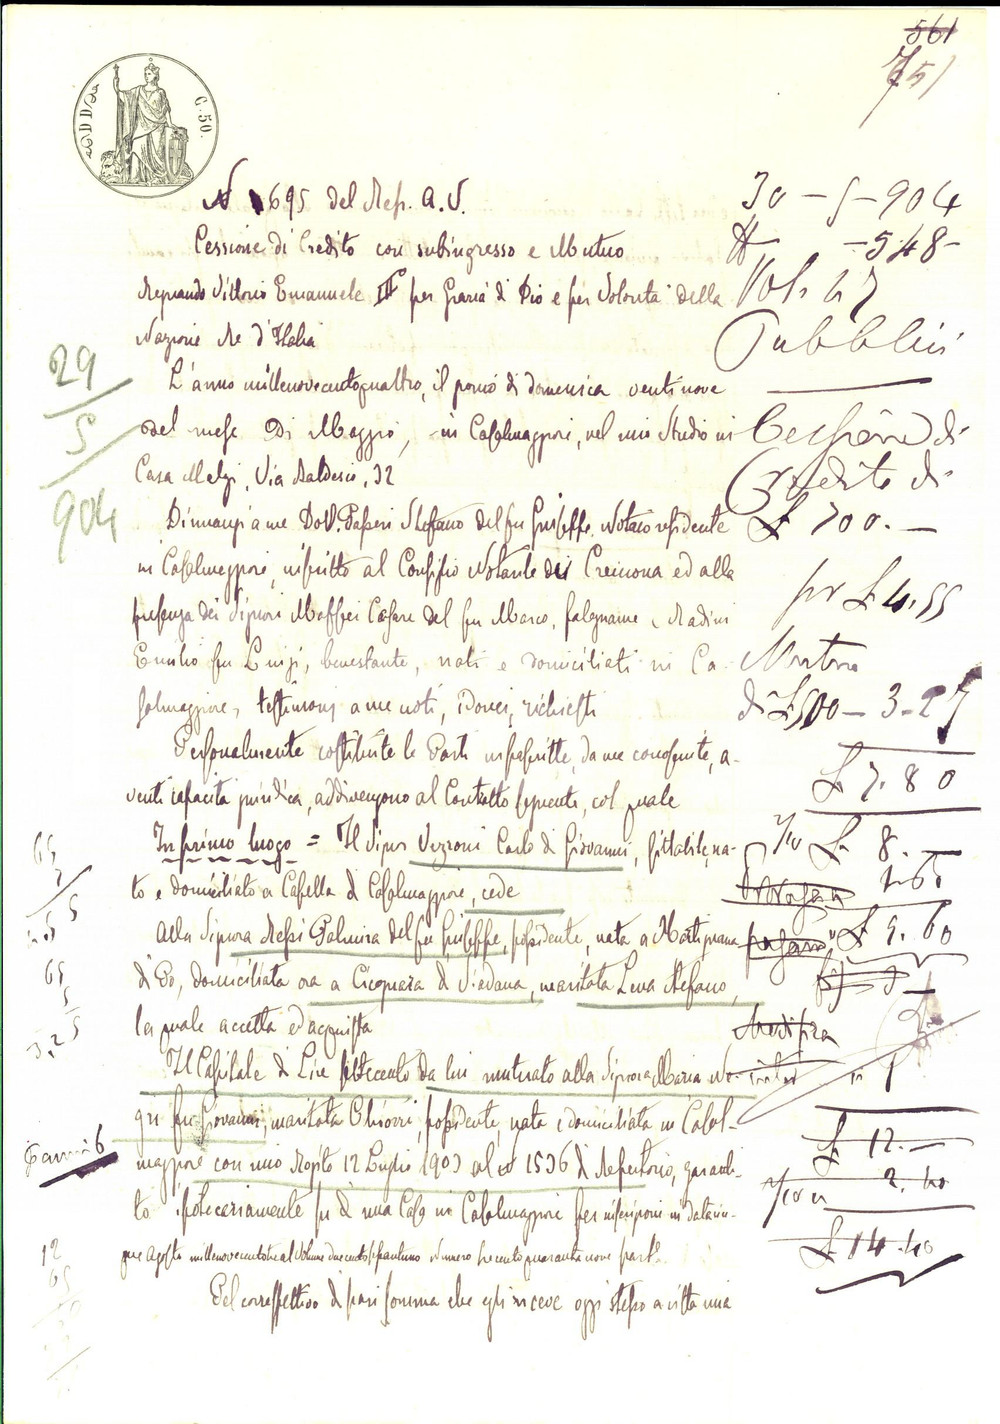 561
751
C. 50.
N 1695 del Rep. A. V.
Cessione di Credito con subingresso e Mutuo
Regnando Vittorio Emanuele III per Grazia di Dio e per Volontà della
Nazione Re d'Italia
L'anno millenovecentoquattro, il giorno di domenica ventinove
del mese Di Maggio, in Casalmaggiore, nel mio Studio in
Casa Melzi, Via Baldesio, 32
Dinnanzi a me Dott. Stefano del fu Giuseppe, Notaro residente
in Casalmaggiore, inscritto al Consiglio Notarile di Cremona ed alla
presenza dei Signori Maffei Cesare del fu Marco, falegname, e Radini
Emilio fu Luigi, benestante, nati e domiciliati in Ca-
salmaggiore, testimonj a me noti, idonei, richiesti
Personalmente costituite le Parti infrascritte, da me conosciute, a-
venti capacità giuridica, addivengono al Contratto seguente, col quale
In primo luogo = Il Signor Carlo di Giovanni, fittabile, na-
to e domiciliato a Cappella di Casalmaggiore, cede
Alla Signora Palmira del fu Giuseppe, possidente, nata a Martignana
di Po, domiciliata ora a Cicognara di Viadana, maritata Leva Stefano,
la quale accetta ed acquista
Il Capitale di Lire settecento da lui mutuato alla Signora Maria
fu Giovanni, maritata possidente, nata e domiciliata in Casal-
maggiore con mio Rogito 12 Luglio 1903 al N 1536 di Repertorio, garanti-
to ipotecariamente su di una Casa in Casalmaggiore per inscrizioni in data cin-
que Agosto millenovecentotre al Volume Numero trecento quaranta nove part.
Pel corrispettivo di pari somma che egli riceve oggi stesso a vista mia
30 - 5 - 904
N - 548 -
Vol. 67
Pubblici
Cessione di
Credito di
£ 700. -
per £ 4.55
Mutuo
di £ 500 - 3-25
£ 7.80
£ 8. -
1.60
£ 9.60
£ 12. -
2.40
£ 14.40
29
5
904
65
7
4,55
65
5
3,25
12
65